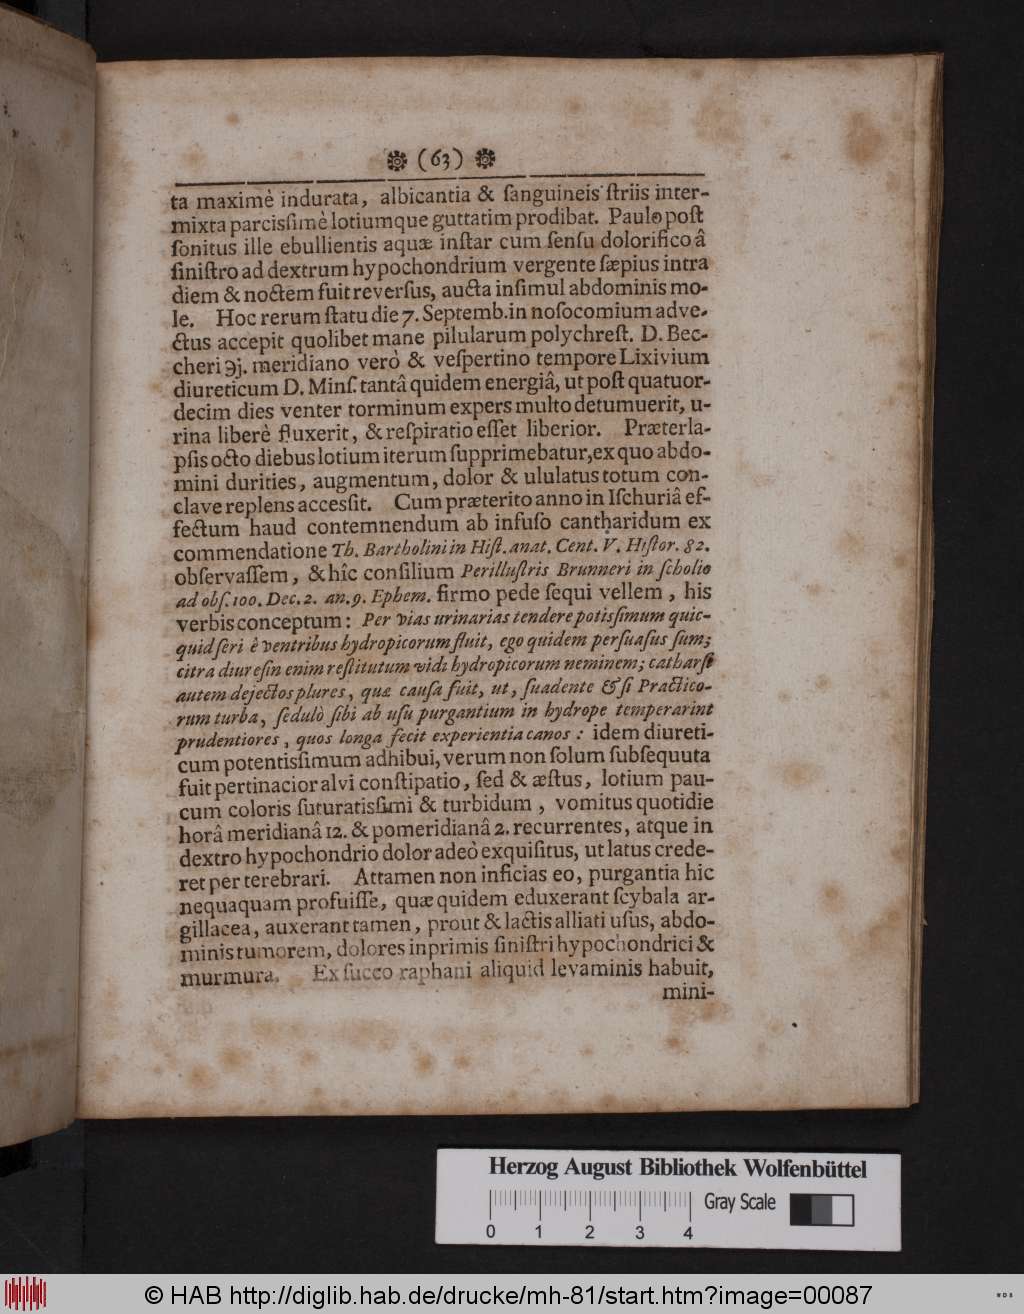 ❁ (63) ❁
ta maximè indurata, albicantia & ſanguineis ſtriis inter-
mixta parciſſimè lotiumque guttatim prodibat. Paulo poſt
ſonitus ille ebullientis aquæ inſtar cum ſenſu dolorifico â
ſiniſtro ad dextrum hypochondrium vergente ſæpius intra
diem & noctem fuit reverſus, aucta inſimul abdominis mo-
le. Hoc rerum ſtatu die 7. Septemb. in noſocomium adve-
ctus accepit quolibet mane pilularum polychreſt. D. Bec-
cheri ℈j. meridiano verò & veſpertino tempore Lixivium
diureticum D. Minſ. tantâ quidem energiâ, ut poſt quatuor-
decim dies venter torminum expers multo detumuerit, u-
rina liberè fluxerit, & reſpiratio eſſet liberior. Præterla-
pſis octo diebus lotium iterum ſupprimebatur, ex quo abdo-
mini durities, augmentum, dolor & ululatus totum con-
clave replens acceſſit. Cum præterito anno in Iſchuriâ ef-
fectum haud contemnendum ab infuſo cantharidum ex
commendatione Th. Bartholini in Hiſt. anat. Cent. V. Hiſtor. 82.
obſervaſſem, & hîc conſilium Perilluſtris Brunneri in ſcholio
ad obſ. 100. Dec. 2. an. 9. Ephem. firmo pede ſequi vellem, his
verbis conceptum: Per vias urinarias tendere potiſſimum quic-
quid ſeri è ventribus hydropicorum fluit, ego quidem perſuaſus ſum;
citra diureſin enim reſtitutum vidi hydropicorum neminem; catharſi
autem dejectos plures, quæ cauſa fuit, ut, ſuadente etſi Practico-
rum turba, ſedulò ſibi ab uſu purgantium in hydrope temperarint
prudentiores, quos longa fecit experientia canos: idem diureti-
cum potentiſſimum adhibui, verum non ſolum ſubſequuta
fuit pertinacior alvi conſtipatio, ſed & æſtus, lotium pau-
cum coloris ſuturatiſſimi & turbidum, vomitus quotidie
horâ meridianâ 12. & pomeridianâ 2. recurrentes, atque in
dextro hypochondrio dolor adeò exquiſitus, ut latus crede-
ret per terebrari. Attamen non inficias eo, purgantia hic
nequaquam profuiſſe, quæ quidem eduxerant ſcybala ar-
gillacea, auxerant tamen, prout & lactis alliati uſus, abdo-
minis tumorem, dolores inprimis ſiniſtri hypochondrici &
murmura. Ex ſucco raphani aliquid levaminis habuit,
mini-
Herzog August Bibliothek Wolfenbüttel
Gray Scale
0 1 2 3 4
© HAB http://diglib.hab.de/drucke/mh-81/start.htm?image=00087